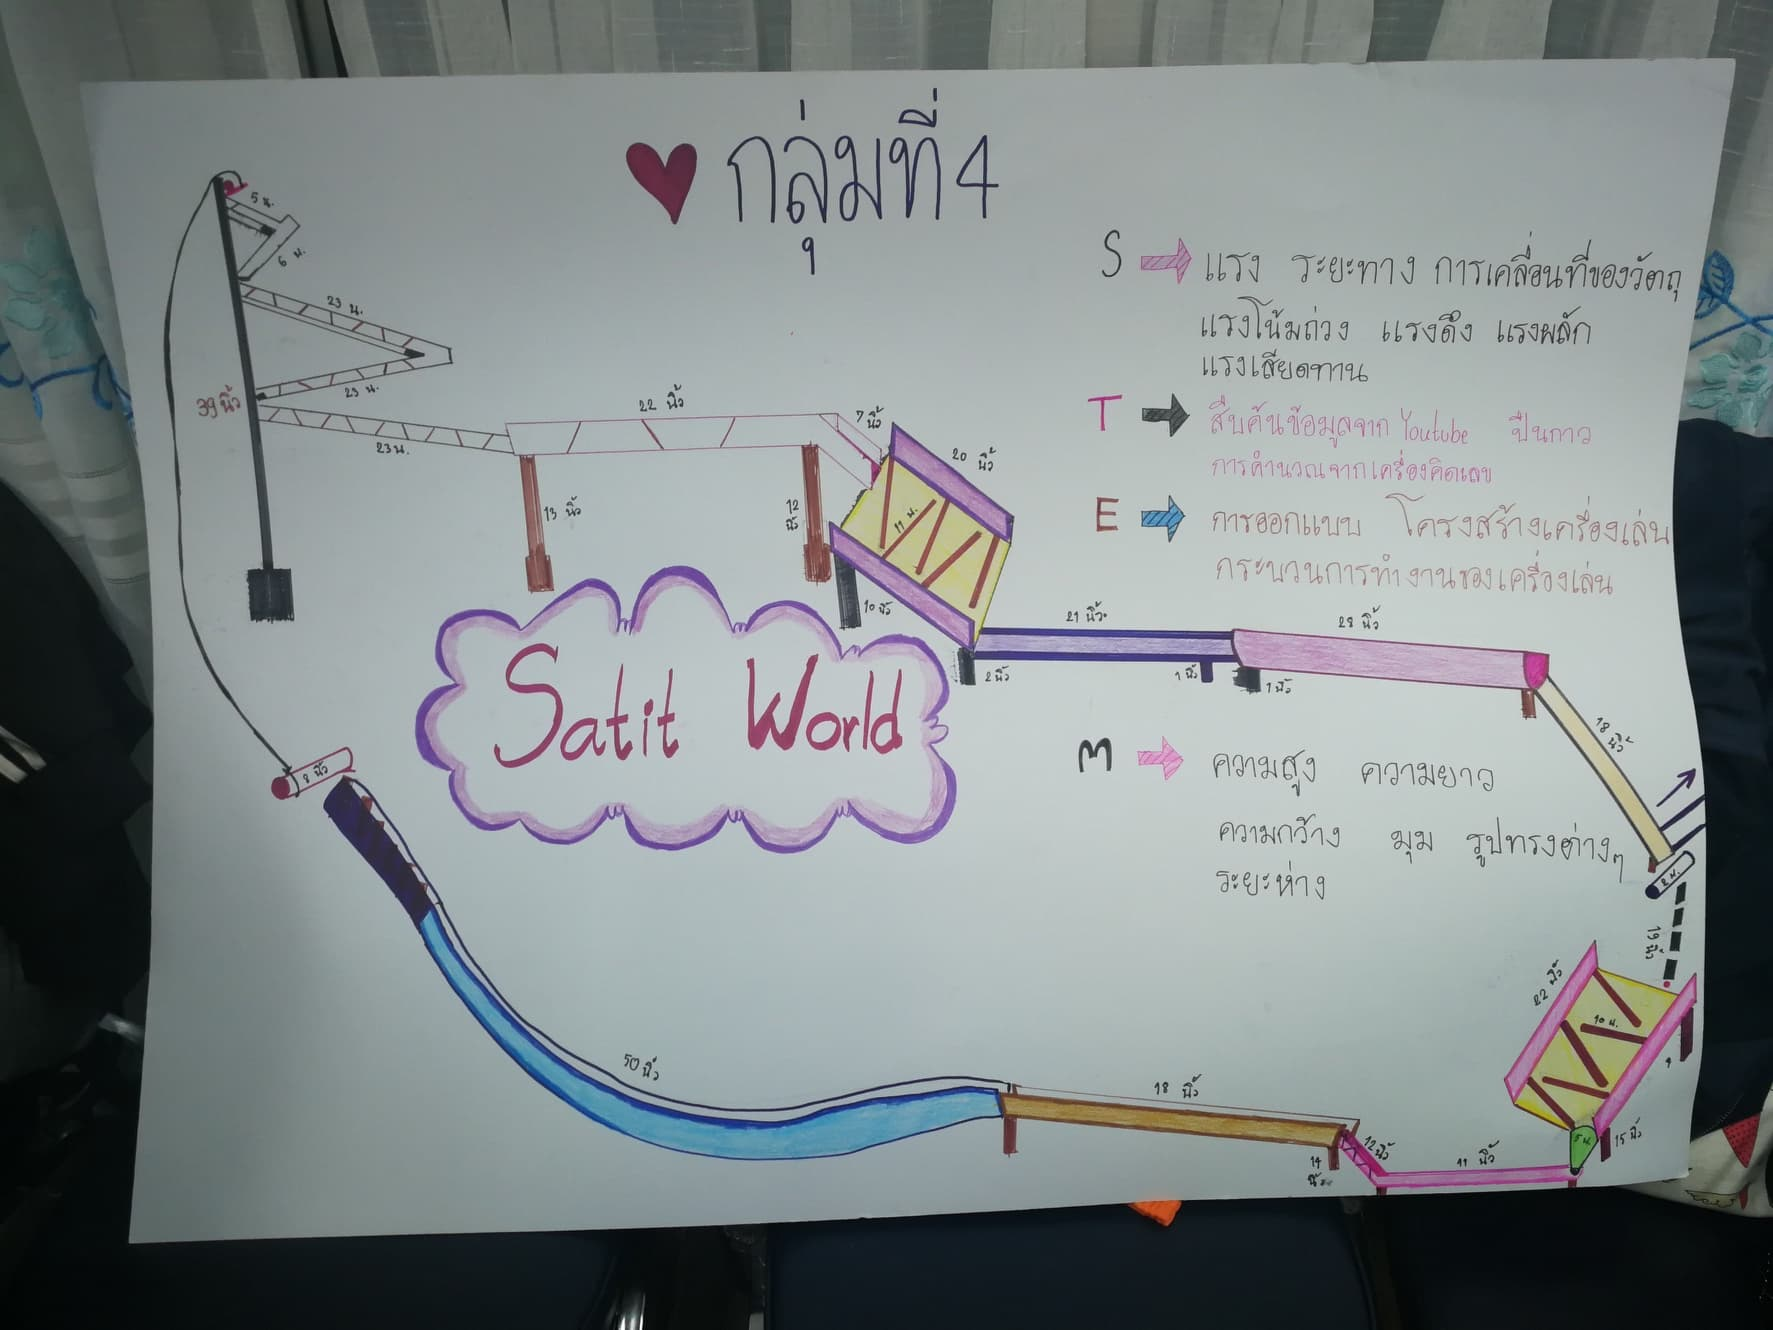 กลุ่มที่ 4
S แรง ระยะทาง การเคลื่อนที่ของวัตถุ
แรงโน้มถ่วง แรงดึง แรงผลัก
แรงเสียดทาน
T สืบค้นข้อมูลจาก Youtube ปืนกาว
การคำนวณจากเครื่องคิดเลข
E การออกแบบ โครงสร้างเครื่องเล่น
กระบวนการทำงานของเครื่องเล่น
M ความสูง ความยาว
ความกว้าง มุม รูปทรงต่างๆ
ระยะห่าง
Satit World
5 น.
6 น.
23 น.
23 น.
39 นิ้ว
23 น.
22 นิ้ว
7 นิ้ว
13 นิ้ว
12 นิ้ว
20 นิ้ว
11 น.
10 นิ้ว
2 นิ้ว
21 นิ้ว
1 นิ้ว
1 นิ้ว
23 นิ้ว
18 นิ้ว
2 น.
19 นิ้ว
22 นิ้ว
10 น.
15 นิ้ว
5 น.
11 นิ้ว
12 นิ้ว
14 นิ้ว
18 นิ้ว
50 นิ้ว
8 นิ้ว